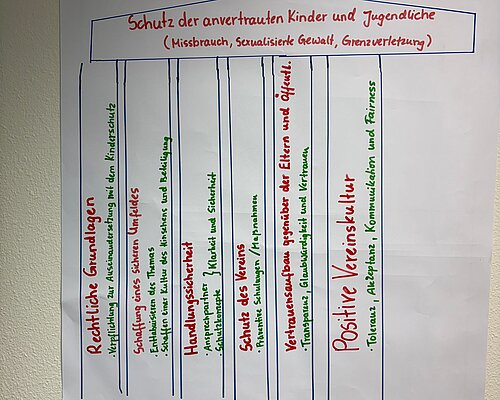 Schutz der anvertrauten Kinder und Jugendliche
(Missbrauch, Sexualisierte Gewalt, Grenzverletzung)
Rechtliche Grundlagen
· Verpflichtung zur Auseinandersetzung mit dem Kinderschutz
Schaffung eines sicheren Umfeldes
· Enttabuisieren des Themas
· Schaffen einer Kultur des Hinsehens und Beteiligung
Handlungssicherheit
· Ansprechpartner } Klarheit und Sicherheit
· Schutzkonzepte
Schutz des Vereins
· Präventive Schulungen / Maßnahmen
Vertrauensaufbau gegenüber der Eltern und Öffentl.
· Transparenz, Glaubwürdigkeit und Vertrauen
Positive Vereinskultur
· Toleranz, Akzeptanz, Kommunikation und Fairness